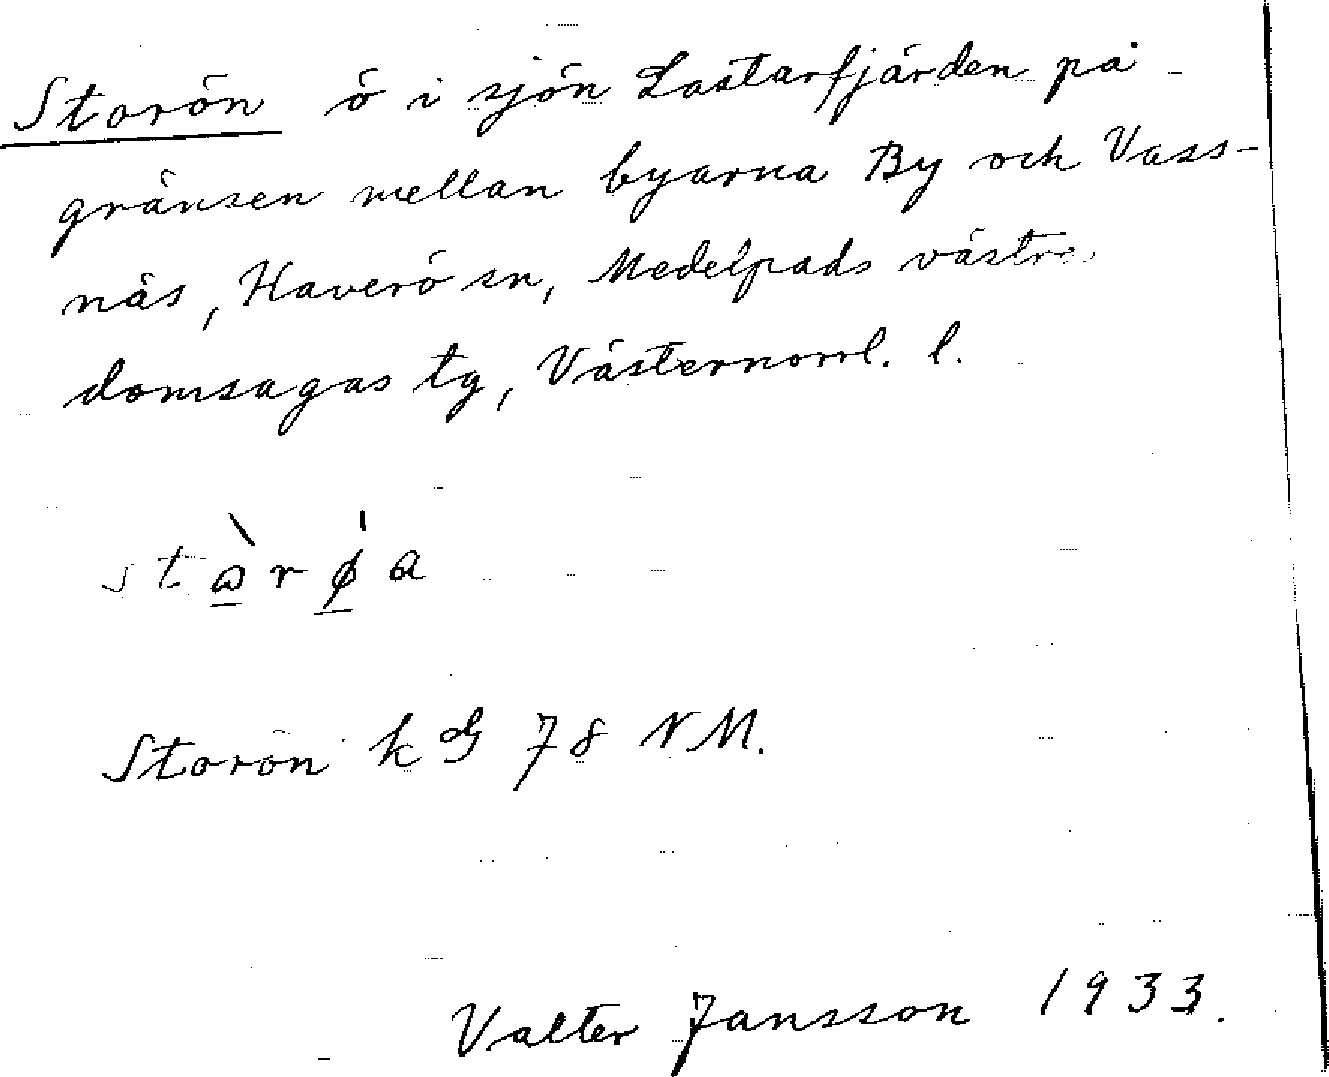 Storön ö i sjön Lastarfjärden på
gränsen mellan byarna By och Vass-
näs, Haverö sn, Medelpads västra
domsagas tg, Västernorrl. l.
Storön k 78 NM.
Valter Jansson 1933.